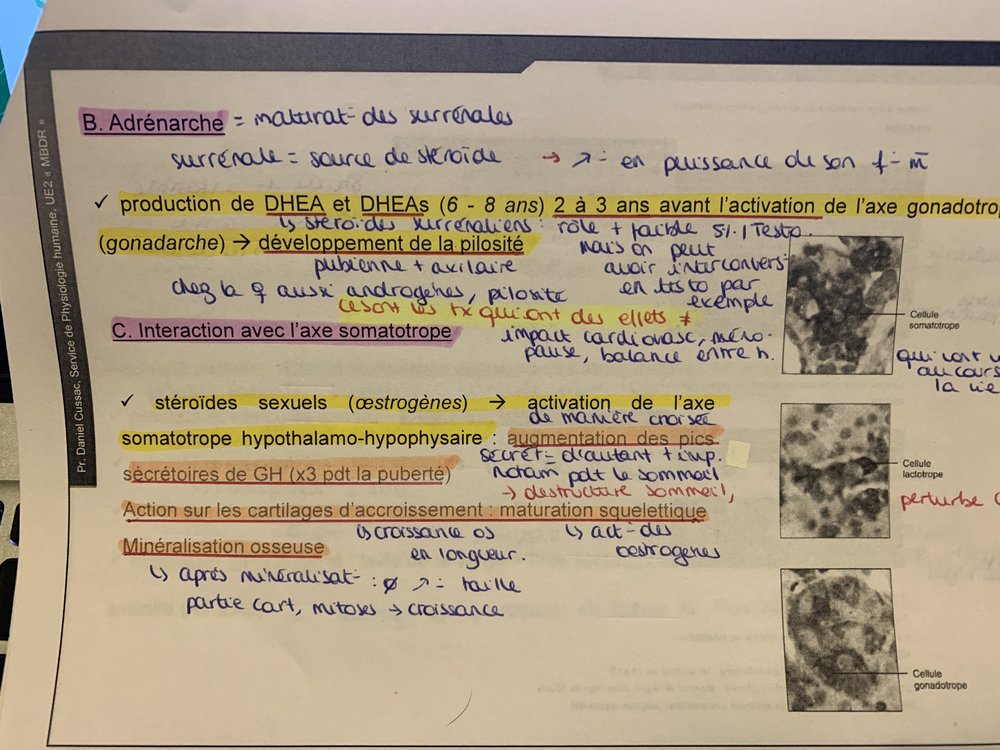 Pr. Daniel Cussac, Service de Physiologie humaine, UE2 « MBDR »
B. Adrénarche = maturat- des surrénales
surrénale = source de stéroïde → ↗ = en puissance de son f- m̄
✓ production de DHEA et DHEAs (6 - 8 ans) 2 à 3 ans avant l'activation de l'axe gonadotro
↳ stéroïdes surrénaliens : rôle + faible si / Testo.
(gonadarche) → développement de la pilosité
mais on peut
pubienne + axilaire
avoir interconvers-
chez la ♀ aussi androgènes, pilosité
en testo par
exemple
ce sont les tx qui ont des effets ≠
C. Interaction avec l'axe somatotrope
impact cardiovasc, méno-
pause, balance entre h.
Cellule
somatotrope
qui
au cours
la vie
✓ stéroïdes sexuels (œstrogènes) → activation de l'axe
de manière croisée
somatotrope hypothalamo-hypophysaire : augmentation des pics
sécrét= d'autant + imp.
sécrétoires de GH (x3 pdt la puberté)
notam pdt le sommeil
→ destructure sommeil,
Cellule
lactotrope
perturbe
Action sur les cartilages d'accroissement : maturation squelettique
↳ croissance os
en longueur.
↳ act- des
oestrogènes
Minéralisation osseuse
↳ après minéralisat- : ø ↗ = taille
partie cart, mitoses → croissance
Cellule
gonadotrope